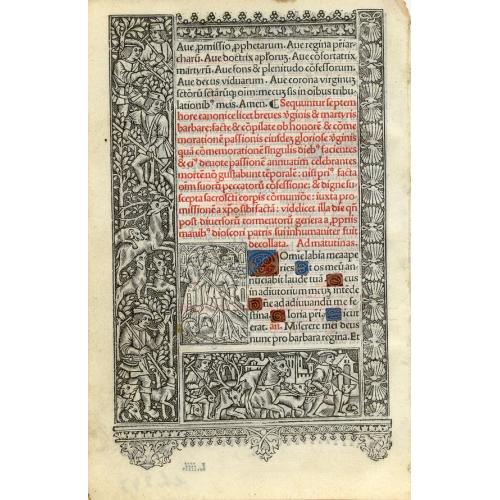 Aue ꝓmissio ꝓphetarum. Aue regina pr̄iar-
charū. Aue doctrix aplorꝫ. Aue cōfortatrix
martyrū. Aue fons & plenitudo cōfessorum.
Aue decus viduarum. Aue corona virginuꝫ
sctōrū sctārūqꝫ oim: mecuꝫ sis in oibus tribu
lationibꝰ meis. Amen. ¶ Sequuntur septem
hore canonice licet breues v̄ginis & martyris
barbare: facte & cōpilate ob honorē & cōme
morationē passionis eiusdeꝫ gloriose v̄ginis
quā cōmemorationē singulis diebꝰ faciētes
& eiꝰ deuote passionē annuatim celebrantes
mortē nō gustabunt tēporalē: nisi priꝰ facta
oim suorū peccatorū cōfessione: & digne su-
scepta sacrosctī corpis cōmunione: iuxta pro
missionē a xp̄o sibi factā: videlicet illa die qn̄
post diuersorū tormentorū genera a ꝓpriis
manibꝰ dioscori patris sui inhumaniter fuit
decollata. Ad matutinas.
Domie labia mea ape
ries Et os meū an-
nuciabit laudē tuā Deus
in adiutorium meuꝫ intēde
Dn̄e ad adiuuandū me fe
stina Gloria pri Sicut
erat. an. Miserere mei deus
nunc pro barbara regina. Et